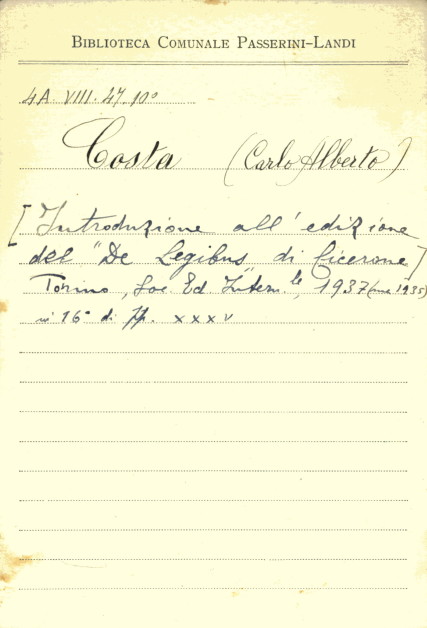 BIBLIOTECA COMUNALE PASSERINI-LANDI
4A. VIII. 47. 10°
Costa (Carlo Alberto)
[Introduzione all'edizione
del "De Legibus" di Cicerone]
Torino, Soc. Ed. Intern.le, 1937 (1935)
in 16° di pp. XXXV